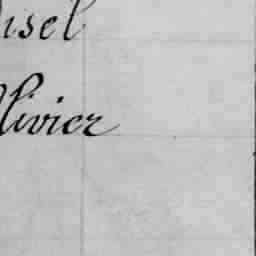 isel
livier